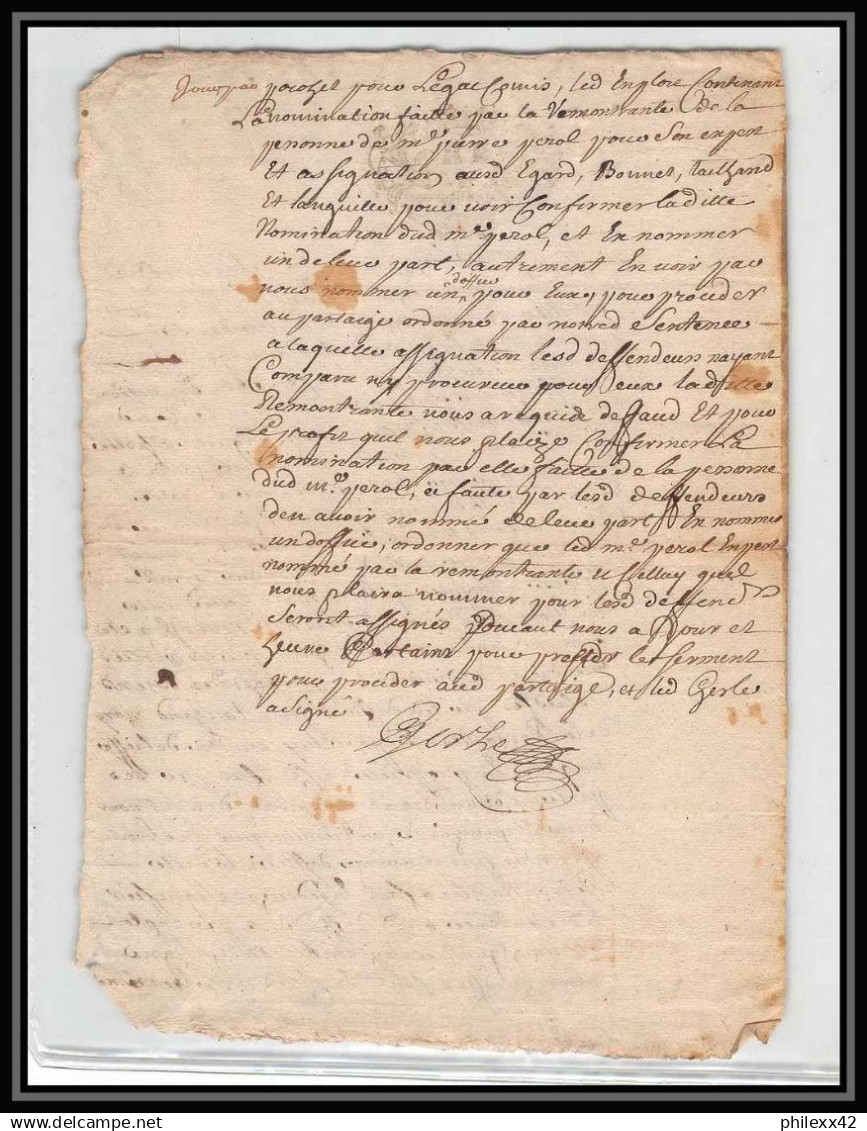 pour Legac Comis, led Exploit Contenant
La nomination faitte par la Remontrante de la
personne de me pierre perol pour Son expert
Et assignation ausd Egard, Bonnet, tailhand
Et languille pour voir Confirmer laditte
Nomination dud me perol, et En nommer
un de leur part, autrement En voir par
nous nommer un doffice pour Eux, pour proceder
au partaige ordonné par nostred e Sentence
a laquelle assignation lesd deffendeurs nayant
Comparu ny procureur pour Eux laditte
Remontrante nous a requis deffaud Et pour
Le profit quil nous plaize Confirmer La
nomination par elle faitte de la personne
dud me perol, et faute par lesd deffendeurs
den avoir nommé de leur part En nommer
un doffice, ordonner que led me perol Expert
nommé par la remontrante et Celluy quil
nous plaira nommer pour lesd deffend rs
Seront assignés pardevant nous a Jour et
heure Certains pour prester le Serment
pour proceder aud partaige, et led Gerle
a signé
Gerle
philexx42